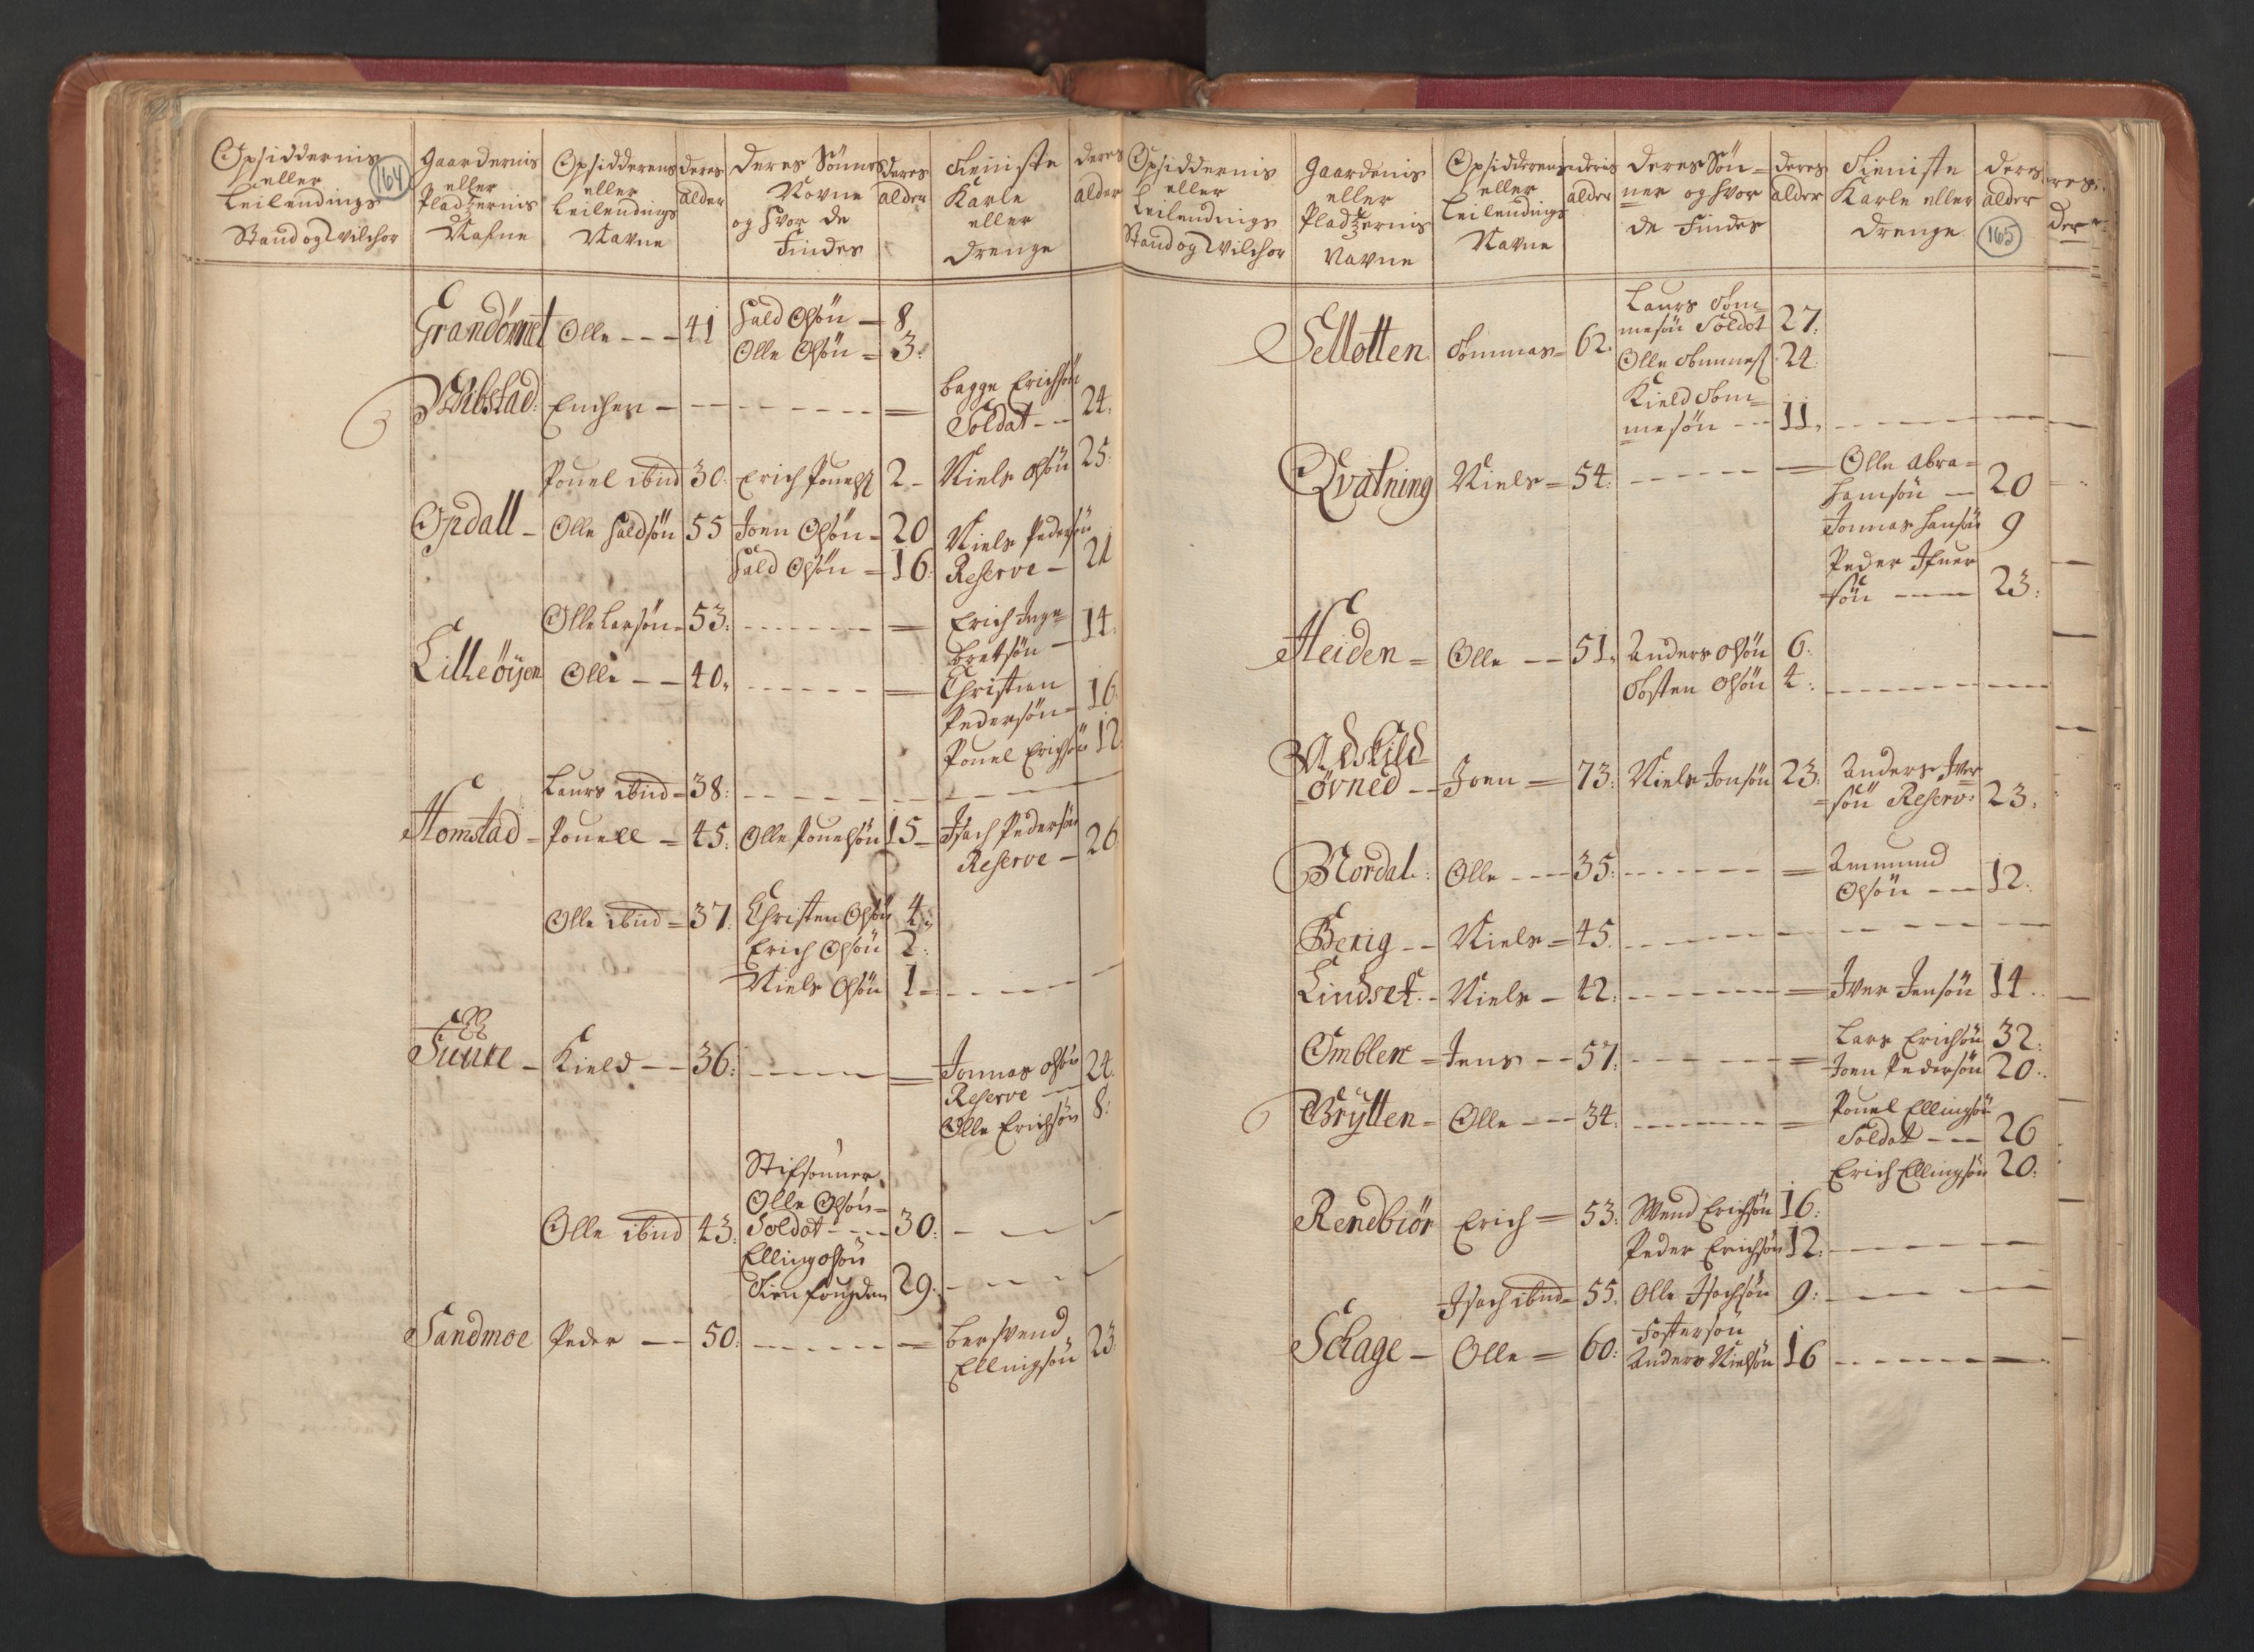 Opsiddernis
eller
Leilendings
Stand og Vilchor
164
Gaardernis
eller
Pladzernis
Nafne
Opsidderens
eller
Leilendings
Navne
deres
alder
Deres Sönners
Novne
og hvor de
Findes
deres
alder
Tieniste
Karle
eller
drenge
deres
alder
Grandömet Olle - - - 41 Hald Olsön - 8
Olle Olsön = 3:
Wibstad: Encher - - - - - - - - - Bagge Erichsön
Soldat - - 24.
Pouel ibid 30: Erich Pouels: 2 - Niels Olsön 25:
Opdall - Olle Haldsön 55 Joen Olsön - 20 Niels Pedersön
Hald Olsön = 16: Reserve - 21
Olle Larsön - 53: - - - - - - = Erich Inge=
bretsön - 14:
Lilleöÿen Olle - - 40, - - - - - - Christian
Pedersön = 16.
Pouel Erichsön 12:
Laurs ibid = 38: - - - - - - - -
Homstad - Pouell = 45: Olle Pouelsön 15 - Isach Pedersön
Reserve - 26
Olle ibid = 37: Christen Olsön 4:
Erich Olsön 2:
Niels Olsön 1 - - - - -
Kield - - 36: - - - - = Jonnas Olsön 24.
Reserve -
Olle Erichsön 8:
Stifsönner
Olle Olsön =
Olle ibid 43: Soldat - - - 30: - - -
Elling Olsön
29. - - - -
Sandmoe Peder - - 50: - - - - - - = Bersvend
Ellingsön 23:
Opsiddernis
eller
Leilendings
Stand og Vilchor
Gaardenis
eller
Pladzernis
Navne
Opsidderens
eller
Leilendings
Navne
deris
alder
Deres Sön=
ner og hvor
de Findes
deres
alder
Tieniste
Karle eller
drenge
deres
alder
165
Laurs Tom=
mesön Soldat 27:
Sellotten. Tommas = 62. Olle Tommes: 24:
Kield Tom=
mesön - - 11, - - - - - -
Qvatning Niels = 54: - - - - - = Olle Abra=
hamsön - 20
Jonnas Hansön 9
Peder Ifuer
sön - - - 23:
Heiden = Olle - - 51, Anders Olsön 6:
Tosten Olsön 4: - - - - - -
Adskild=
=övned - Joen = 73: Niels Jonsön 23: Anders Iver
=sön Reserv: 23:
Nordal: Olle - - - 35: - - - - - = Ammund
Olsön - - 12:
Berig - - Niels = 45. - - - - - - - -
Lindset - Niels - 42: - - - - - = Iver Jensön 14..
Emblen = Jens - - 57: - - - - - = Lars Erichsön 32:
Joen Pedersön 20:
Brÿtten = Olle - - - 34: - - - - - = Pouel Ellingsön
Soldat - - - 26
Erich Ellingsön 20:
Rendbiör Erich = 53: Svend Erichsön 16:
Peder Erichsön 12: - - - - -
Isach ibid = 55. Olle Isachsön 9: - - - -
Schage - Olle = 60: Fostersön
Anders Nielsön 16 - - - - - -